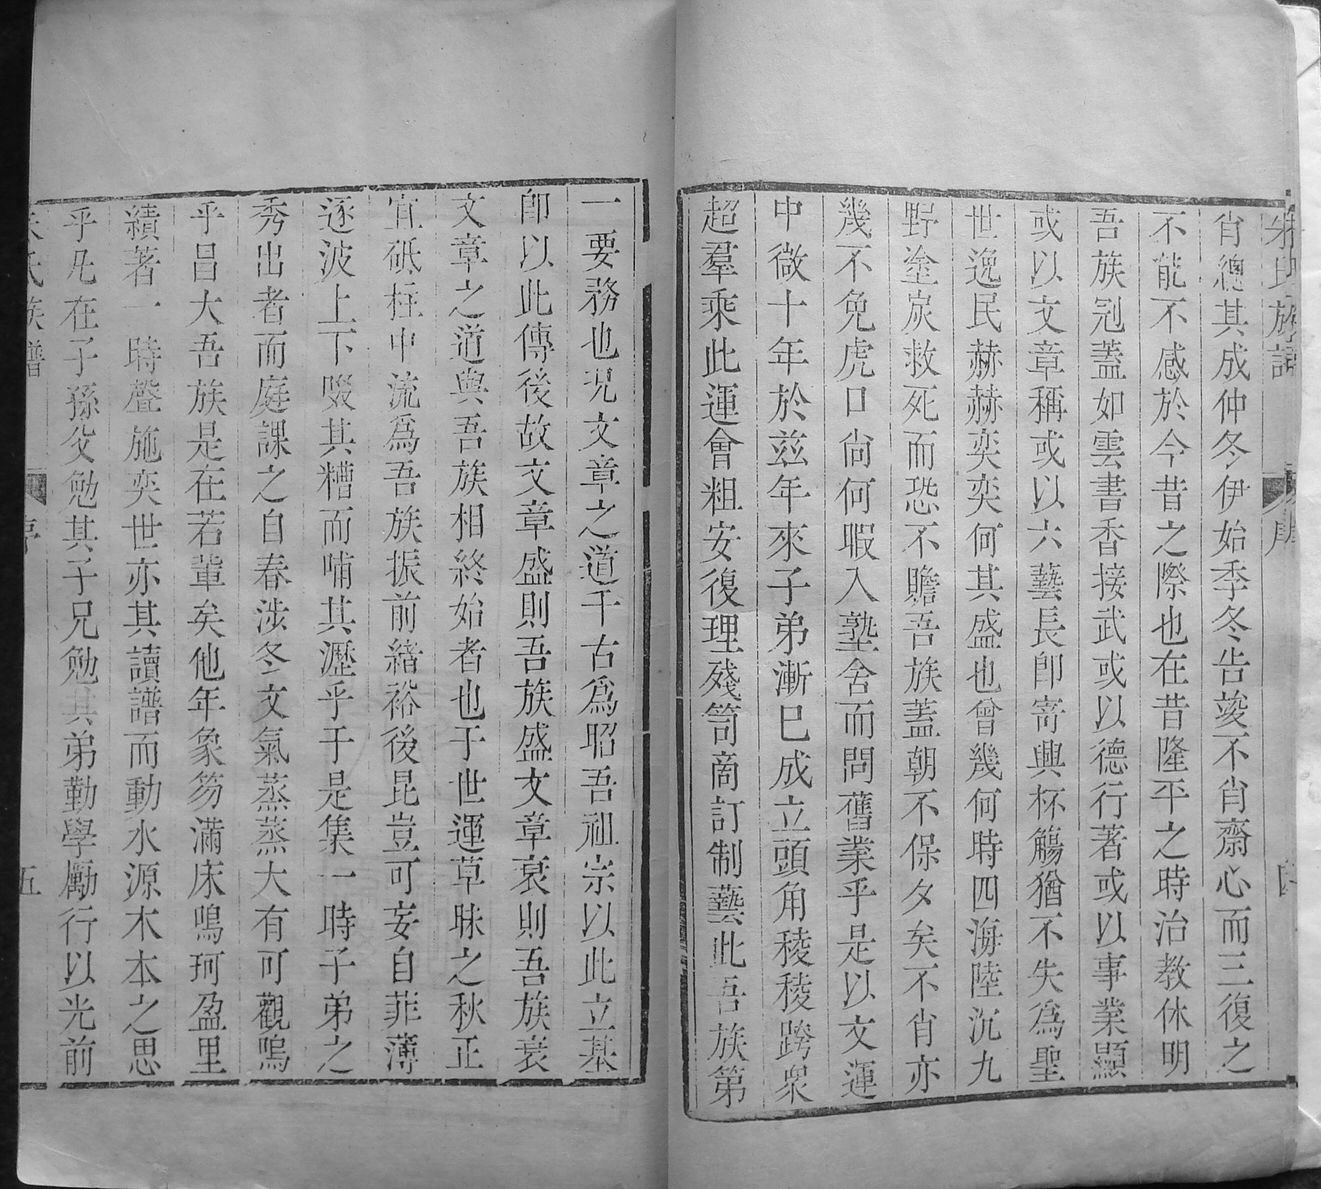 朱氏族譜
序
肖總其成仲冬伊始季冬告竣不肖齋心而三復之
不能不感於今昔之際也在昔隆平之時治教休明
吾族冠蓋如雲書香接武或以德行著或以事業顯
或以文章稱或以六藝長卽寄興杯觴猶不失爲聖
世逸民赫赫奕奕何其盛也曾幾何時四海陸沉九
野塗炭救死而恐不贍吾族蓋朝不保夕矣不肖亦
幾不免虎口尙何暇入塾舍而問舊業乎是以文運
中微十年於兹年來子弟漸巳成立頭角稜稜跨衆
超羣乘此運會粗安復理殘笥商訂制藝此吾族第
一要務也况文章之道千古爲昭吾祖宗以此立基
卽以此傳後故文章盛則吾族盛文章衰則吾族衰
文章之道與吾族相終始者也于世運草昧之秋正
宜砥柱中流爲吾族振前緒裕後昆豈可妄自菲薄
逐波上下啜其糟而哺其瀝乎于是集一時子弟之
秀出者而庭課之自春涉冬文氣蒸蒸大有可觀嗚
乎昌大吾族是在若輩矣他年象笏滿床鳴珂盈里
續著一時聲施奕世亦其讀譜而動水源木本之思
乎凡在子孫父勉其子兄勉其弟勤學勵行以光前
氏族譜
序
五